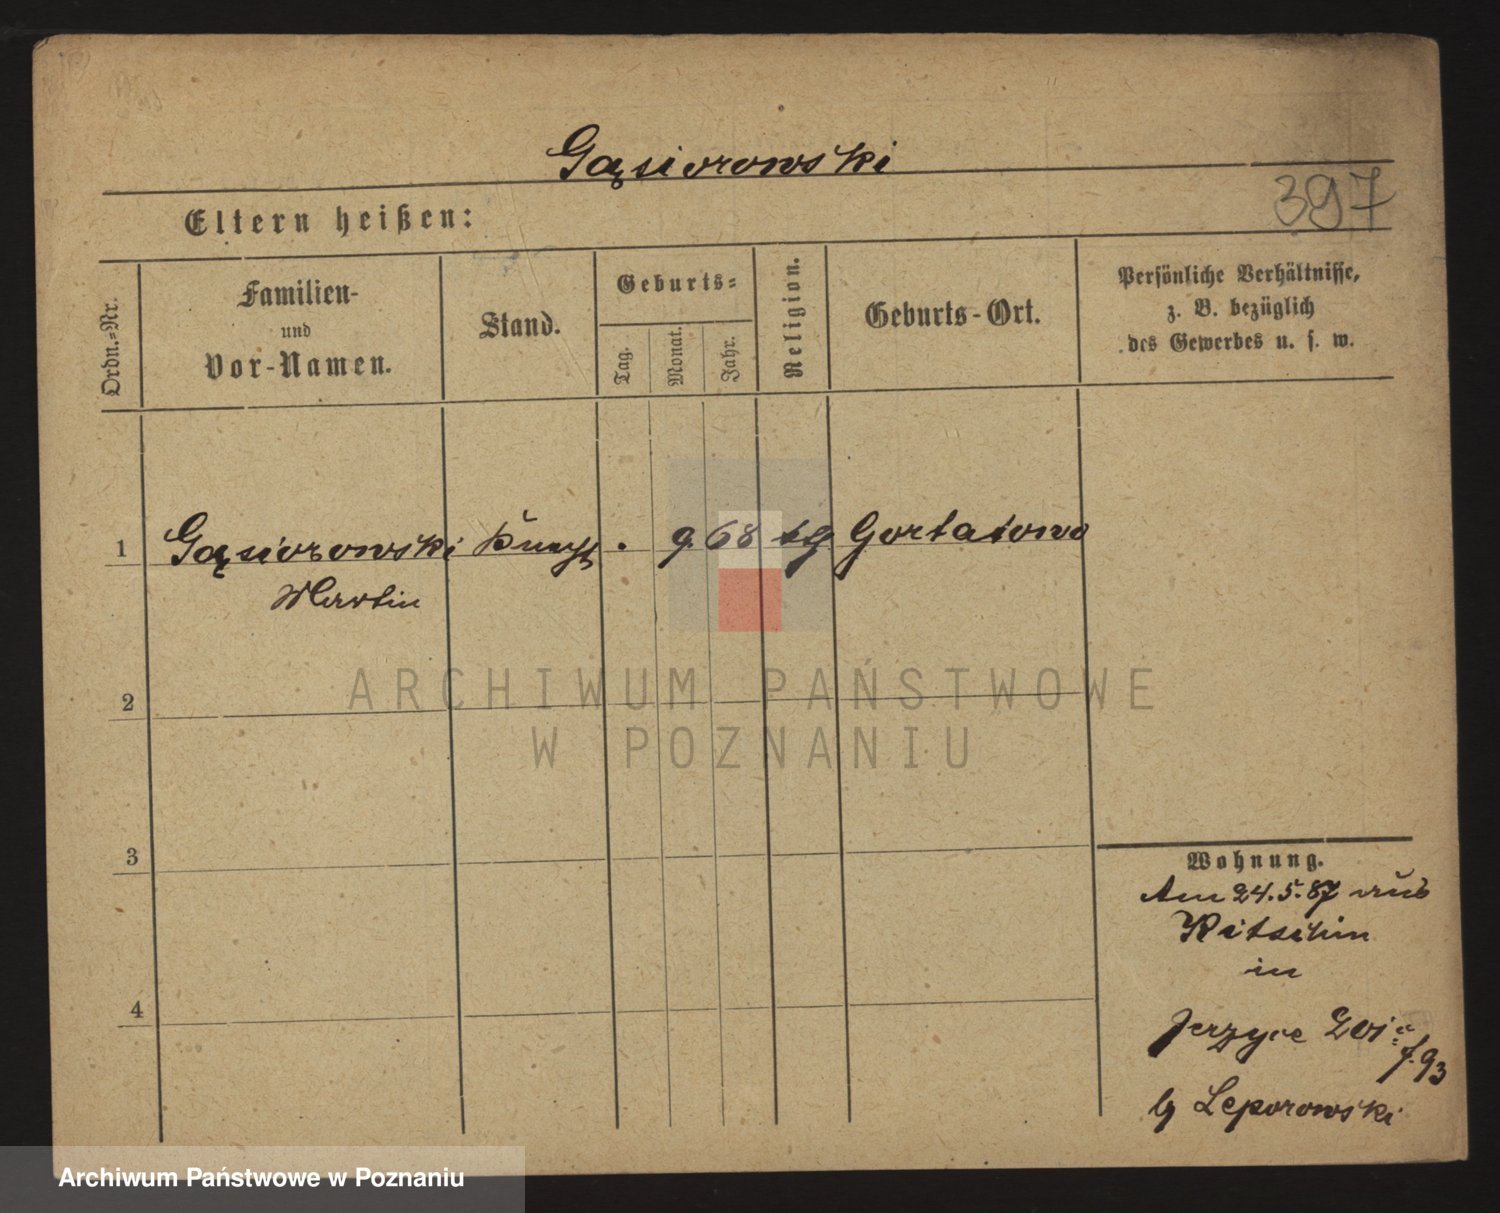 Gąsiorowski
397
Eltern heißen:
Ordn.-Nr.
Familien-
und
Vor-Namen.
Stand.
Geburts-
Tag.
Monat.
Jahr.
Religion.
Geburts-Ort.
Persönliche Verhältnisse,
z. B. bezüglich
des Gewerbes u. s. w.
1 Gąsiorowski Knecht . 9. 68 Gortatowo
Martin
2
3
4
Wohnung.
Am 24.5.87 aus
in
Jerzyce
93
Leporowski
ARCHIWUM PAŃSTWOWE
W POZNANIU
Archiwum Państwowe w Poznaniu